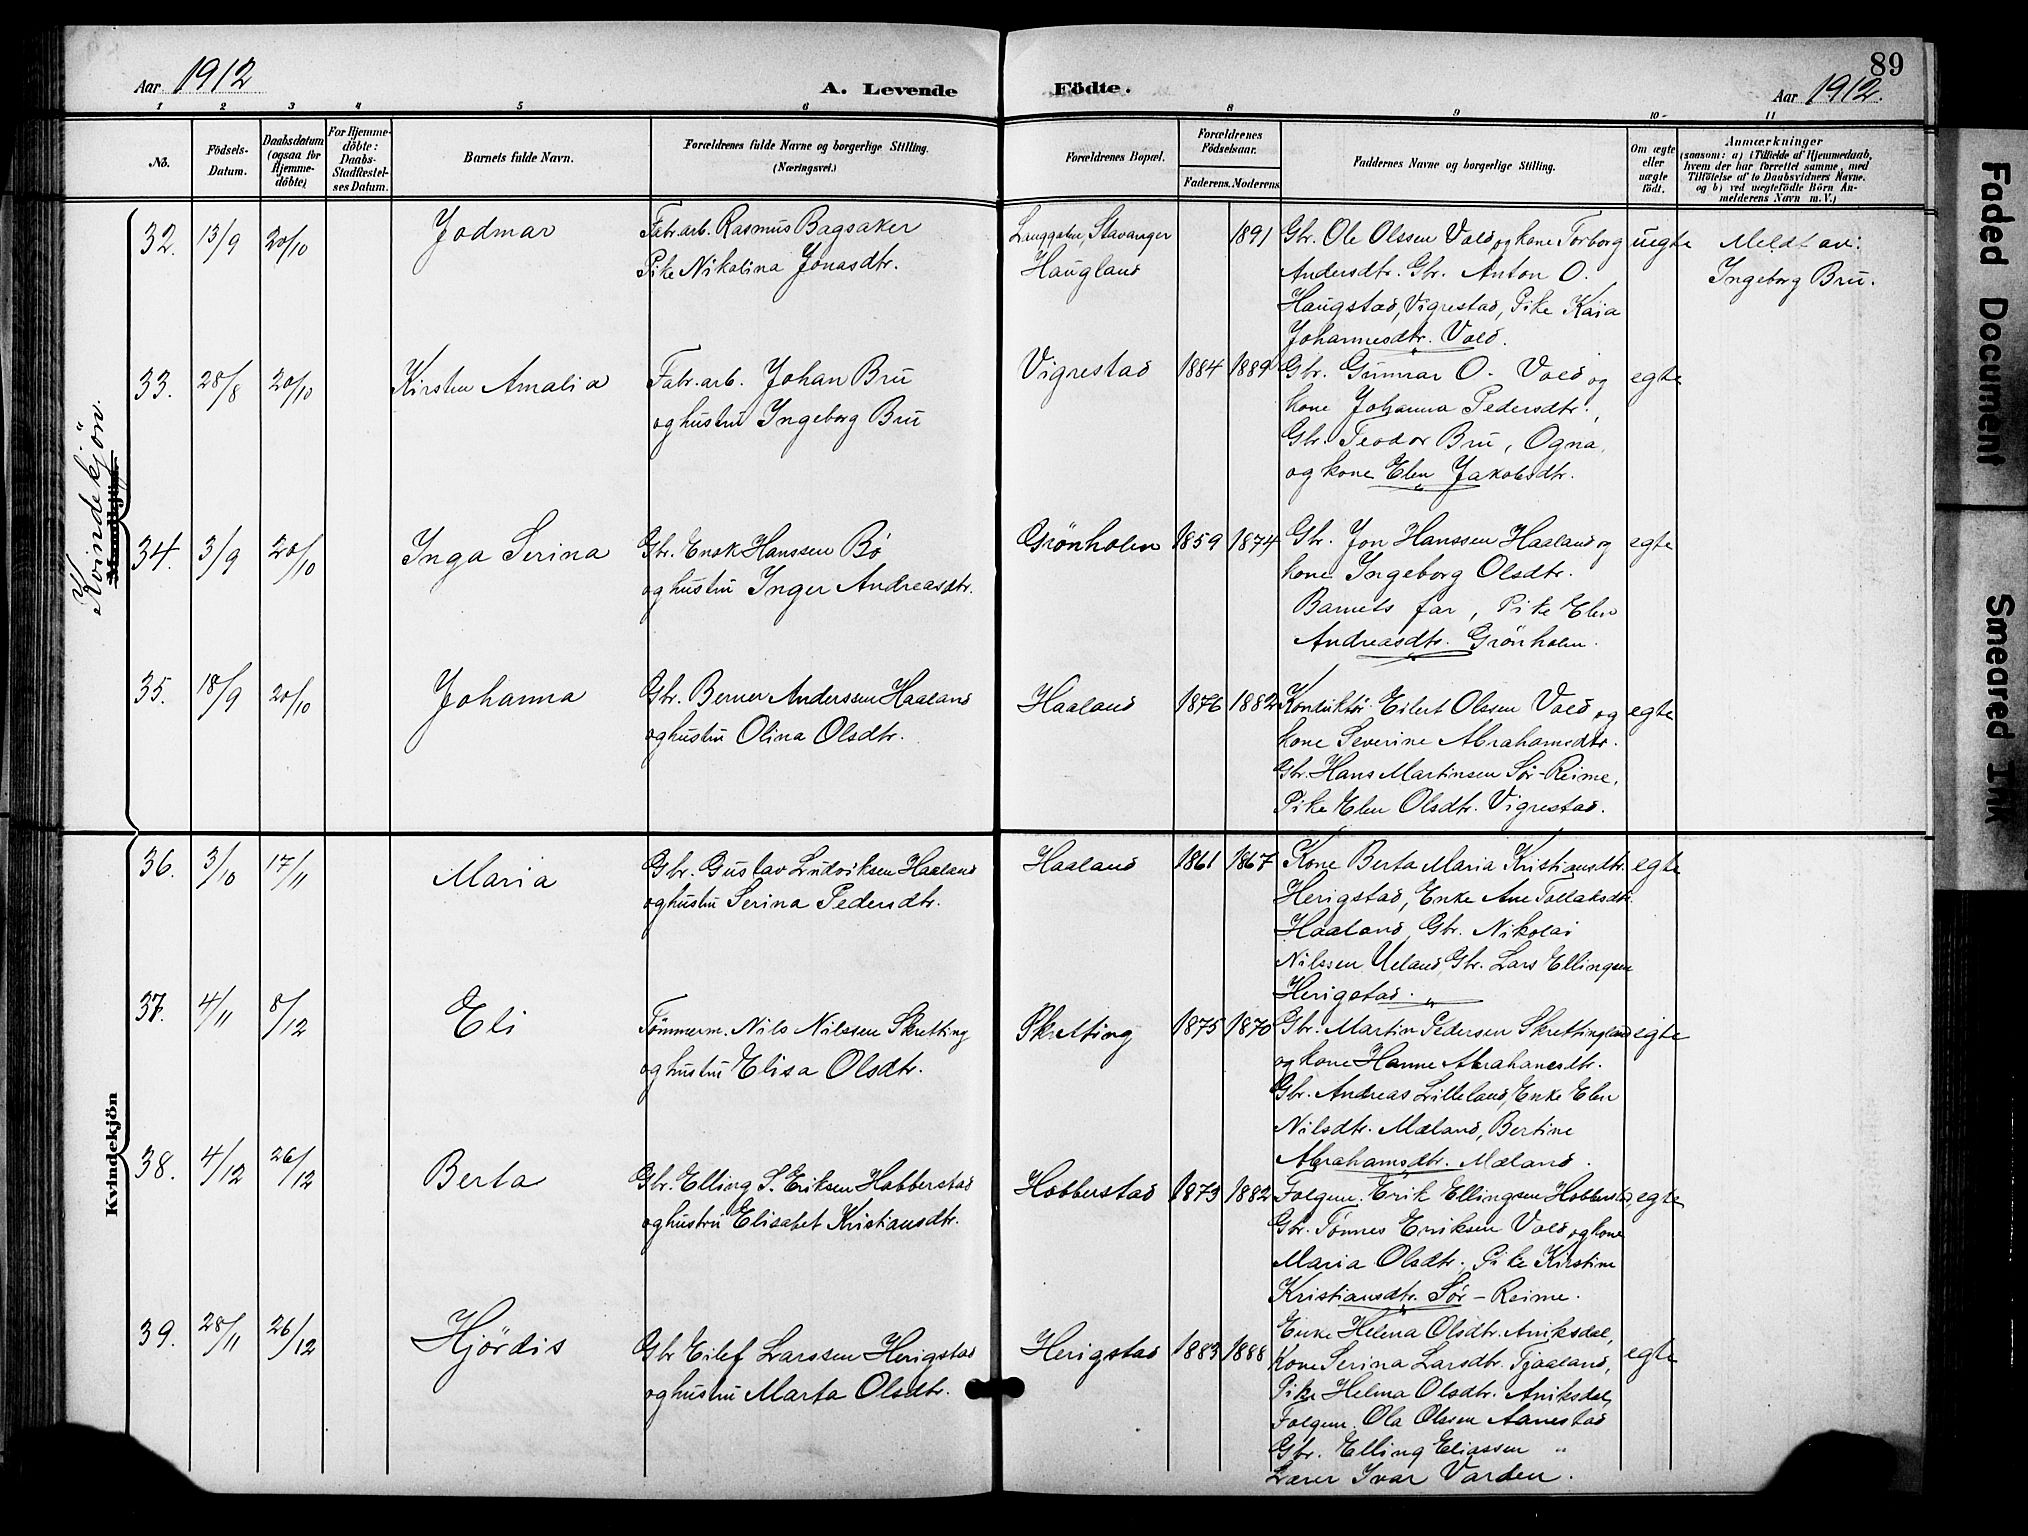 89
Aar 1912
A. Levende
Födte.
Aar 1912.
1 2 3 4 5 6 8 9 10 11
No.
Födsels-
Datum.
Daabsdatum
(ogsaa for
Hjemme-
döbte)
For Hjemme-
döbte:
Daabs-
Stadfestel-
ses Datum.
Barnets fulde Navn.
Forældrenes fulde Navne og borgerlige Stilling.
(Næringsvei.)
Forældrenes Bopæl.
Forældrenes
Födselsaar.
Faderens. Moderens.
Faddernes Navne og borgerlige Stilling.
Om ægte
eller
uægte
födt.
Anmærkninger
(saasom: a) i Tilfælde af Hjemmedaab,
hvem der har forrettet samme, med
Tilföielse af to Daabsvidners Navne.
og b) ved uægtefödte Börn An-
melderens Navn m. V.)
Kvindekjön.
Mandkjön.
Kvindekjön
32. 13/9 20/10 Jodmar
Fabr.arb. Rasmus Bagsaker
Pike Nikolina Jonasdtr.
Stavanger
Haugland
1891
Gbr. Ole Olssen Vold og kone Torborg
Andersdtr. Gbr. Anton O.
Haugstad, Vigrestad, Pike Kaia
Johannesdtr. Vold.
uegte
Meldt av:
Ingeborg Bru.
33. 28/8 20/10 Kirsten Amalia
Fabr.arb. Johan Bru
og hustru Ingeborg Bru
Vigrestad 1884 1889
Gbr. Gunnar O. Vold og
kone Johanna Pedersdtr.,
Gbr. Teodor Bru, Ogna,
og kone Elen Jakobsdtr.
egte
34. 3/9 20/10 Inga Serina
Gbr. Enok Hanssen Bø
og hustru Inger Andreasdtr.
Grönholen 1859 1874
Gbr. Jon Hanssen Haaland og
kone Ingeborg Olsdtr.
Barnets far, Pike Elen
Andreasdtr. Grönholen.
egte
35. 18/9 20/10 Johanna
Gbr. Berner Anderssen Haaland
og hustru Olina Olsdtr.
Haaland 1876 1882
Konduktör Eilert Olssen Vold og
kone Severine Abrahamsdtr.
Gbr. Hans Martinsen Sör-Reime,
Pike Elen Olsdtr. Vigrestad.
egte
36. 3/10 17/11 Maria
Gbr. Gustav Ludviksen Haaland
og hustru Serina Pedersdtr.
Haaland 1861 1867
Kone Berta Maria Kristiansdtr.
Herigstad, Enke Ane Tollaksdtr.
Haaland, Gbr. Nikolai
Nilssen Ueland, Gbr. Lars Ellingsen
Herigstad.
egte
37. 4/11 8/12 Eli
Tömmerm. Nils Nilssen Skretting
og hustru Elisa Olsdtr.
Skretting 1875 1870
Gbr. Martin Pedersen Skrettingland
og kone Hanne Abrahamsdtr.
Gbr. Andreas Lilleland, Enke Elen
Nilsdtr. Mæland, Bertine
Abrahamsdtr. Mæland.
egte
38. 4/12 26/12 Berta
Gbr. Elling S. Eriksen Hobberstad
og hustru Elisabet Kristiansdtr.
Hobberstad 1873 1882
Folgem. Erik Ellingsen Hobberstad,
Gbr. Tönnes Eriksen Vold og kone
Maria Olsdtr., Pike Kirstine
Kristiansdtr. Sör-Reime.
egte
39. 28/11 26/12 Hjördis
Gbr Eilef Larssen Herigstad
og hustru Marta Olsdtr.
Herigstad 1883 1888
Enke Helena Olsdtr. Aniksdal,
Kone Serina Larsdtr. Tjaaland,
Pike Helma Olsdtr. Aniksdal,
Folgem. Ola Olssen Aanestad
Gbr. Elling Eliassen "
Lærer Ivar Varden.
egte
Faded Document
Smeared Ink